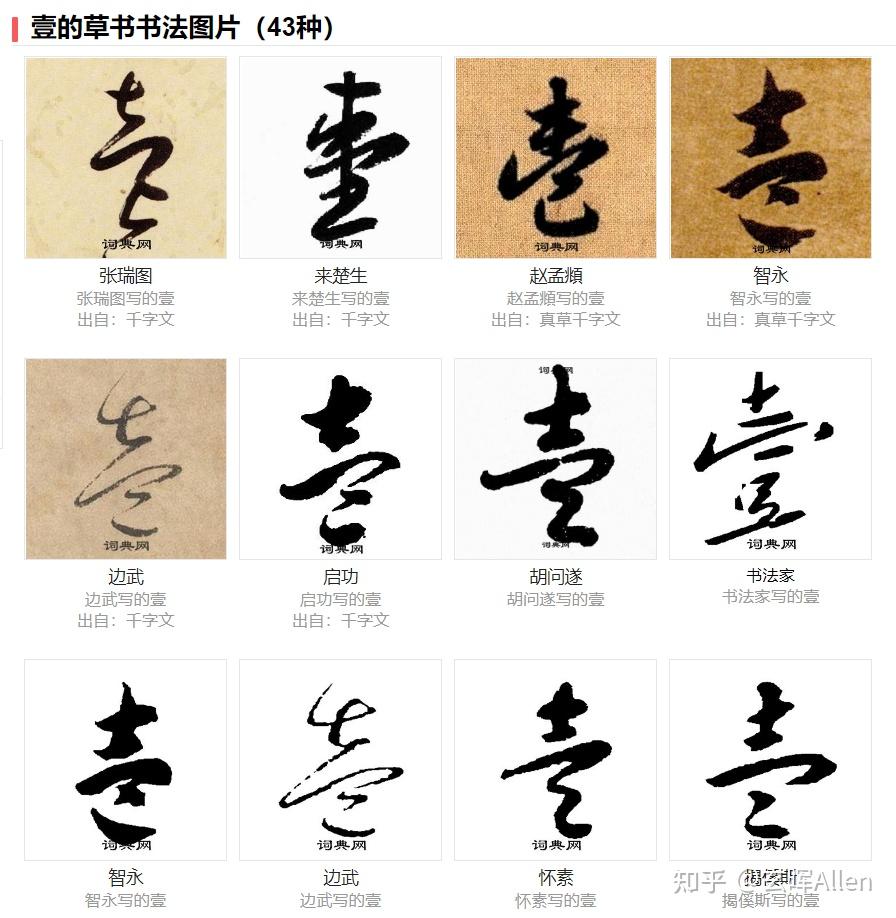 壹的草书书法图片（43种）
壹 壹 壹 壹
词典网 词典网 词典网 词典网
张瑞图 来楚生 赵孟頫 智永
张瑞图写的壹 来楚生写的壹 赵孟頫写的壹 智永写的壹
出自：千字文 出自：千字文 出自：真草千字文 出自：真草千字文
词典网
壹 壹 壹 壹
词典网 词典网 词典网 词典网
边武 启功 胡问遂 书法家
边武写的壹 启功写的壹 胡问遂写的壹 书法家写的壹
出自：千字文 出自：千字文
壹 壹 壹 壹
词典网 词典网 词典网 词典网
智永 边武 怀素 揭傒斯
智永写的壹 边武写的壹 怀素写的壹 揭傒斯写的壹
知乎